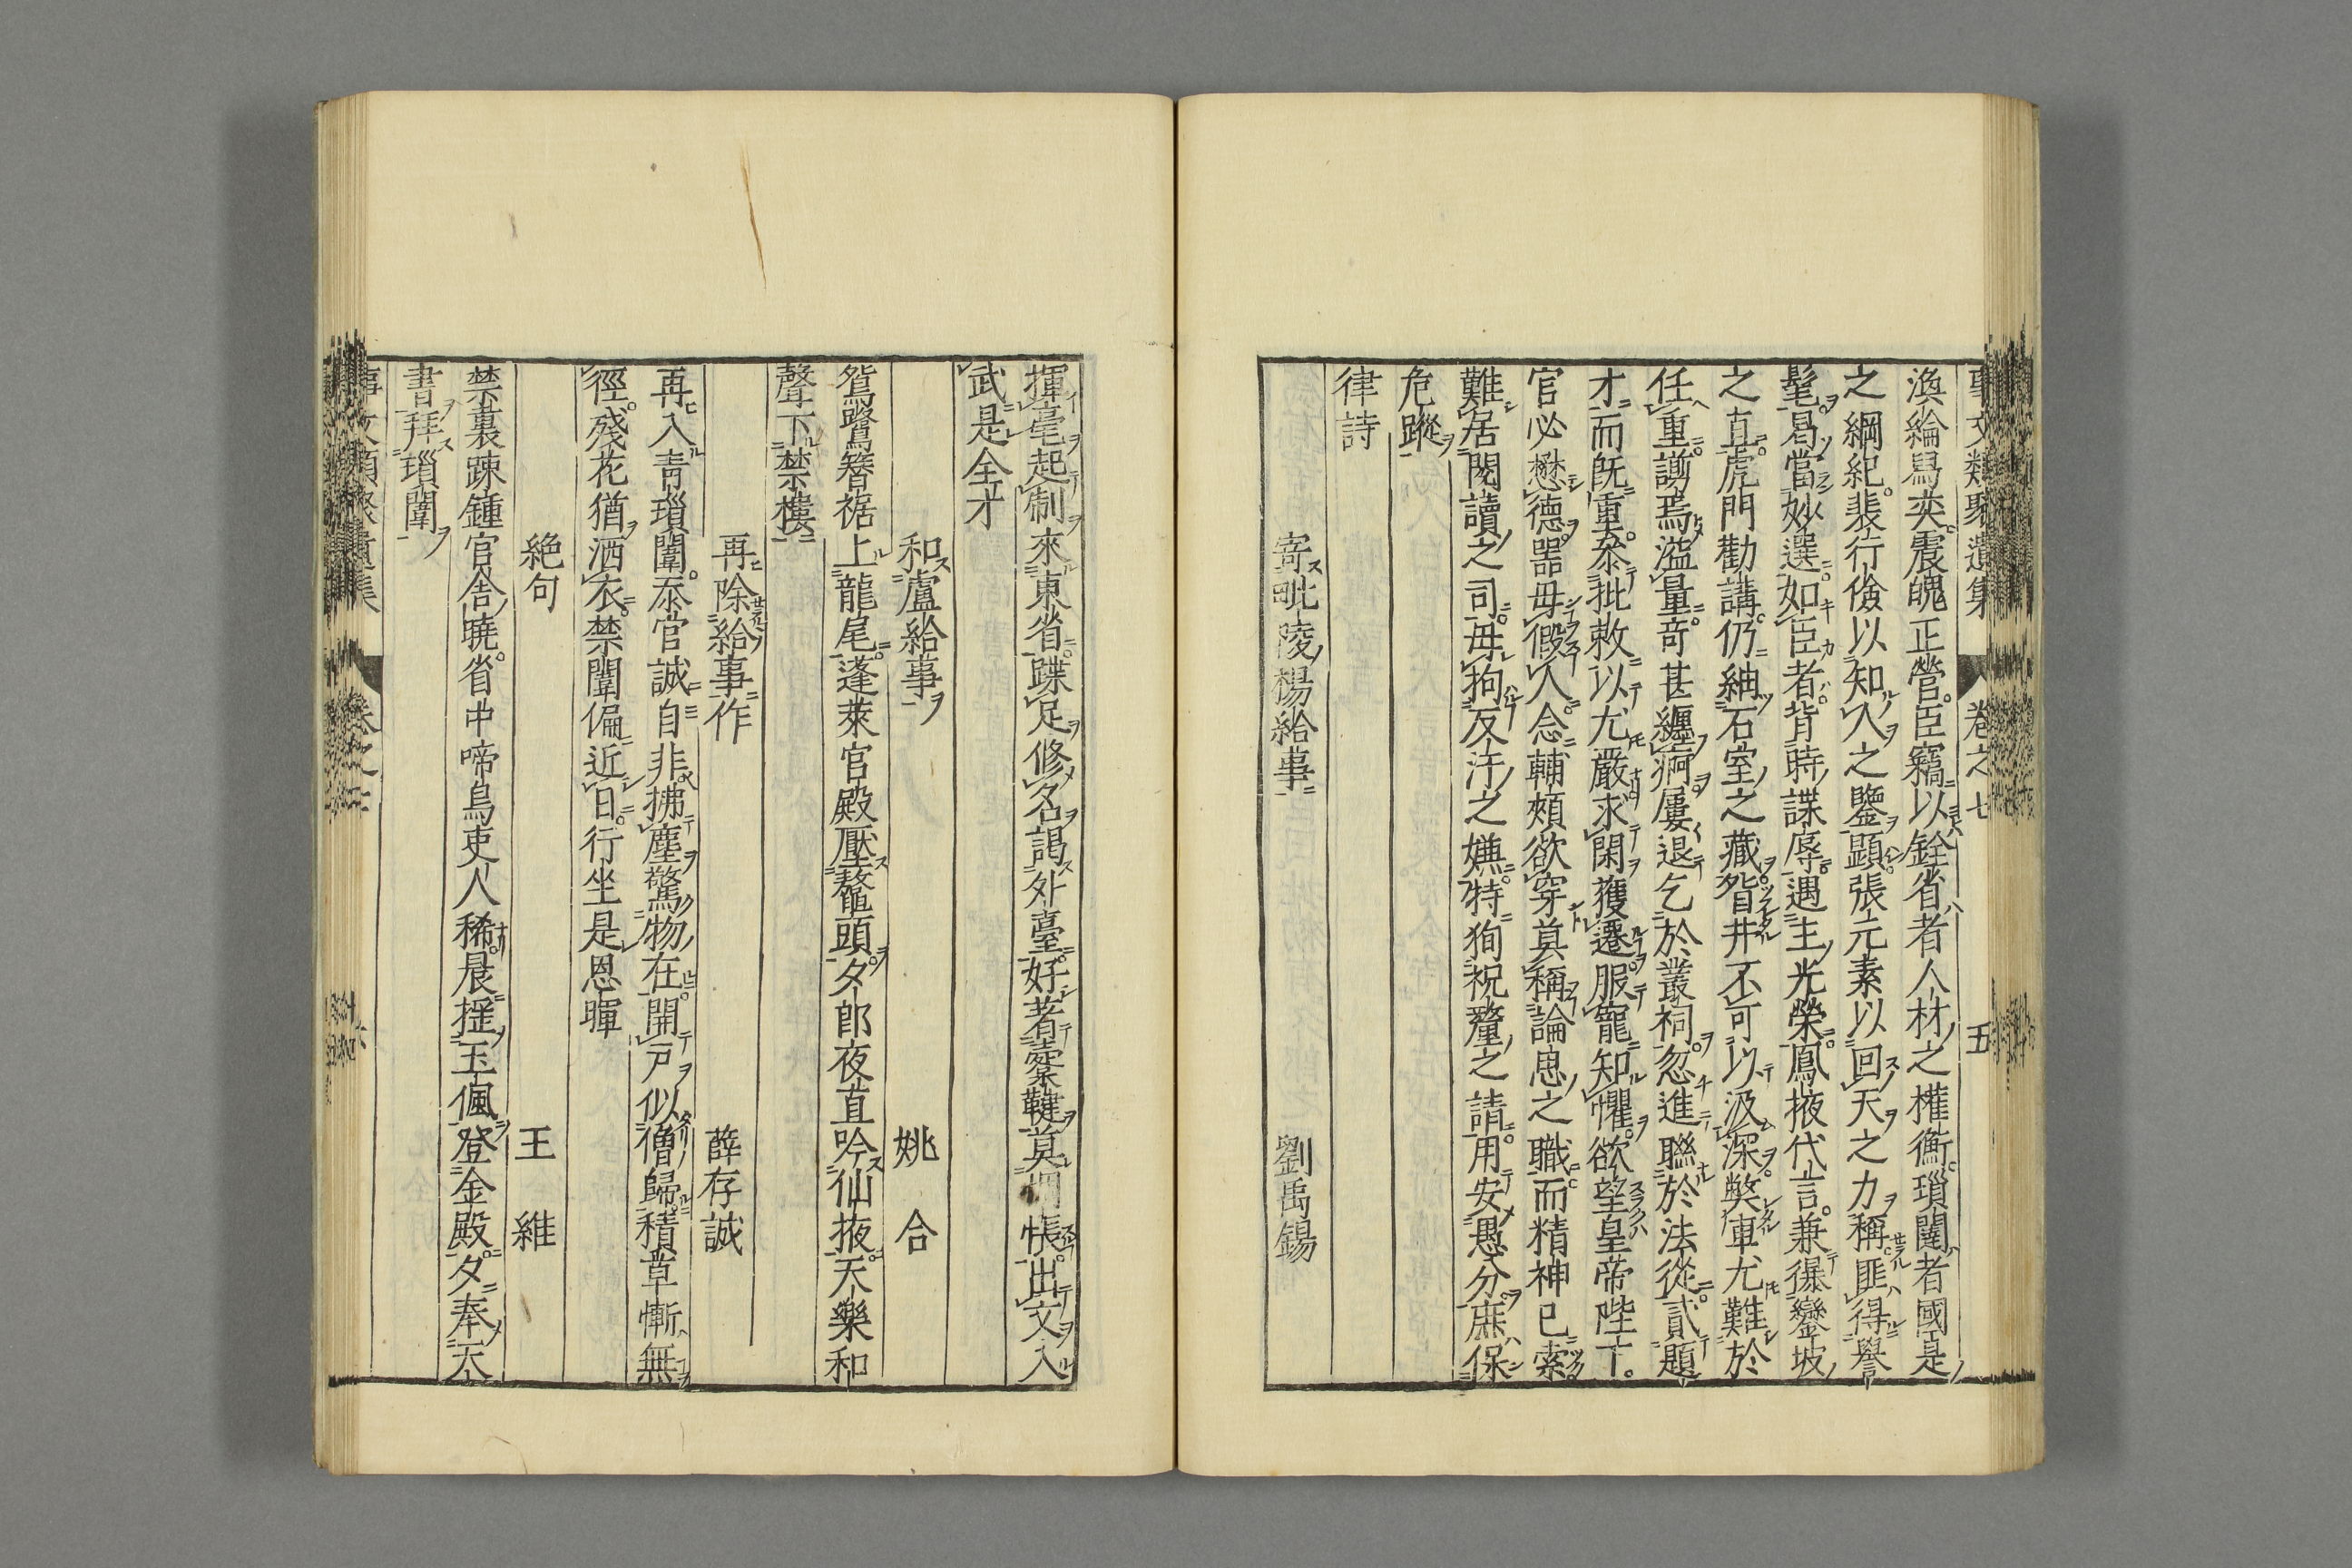 事文類聚遺集 卷之七 五
渙綸爲奕震魄正營臣竊以銓省者人材之權衡瑣闥者國是
之綱紀裴行儉以知人之鑒顯張元素以回天之力稱匪得譽
髦曷當妙選如臣者背時諜辱遇主光榮鳳掖代言兼㬥鑾坡
之直虎門勸講仍紬石室之藏眢井不可以汲深獘車尤難於
任重謭焉溢量竒甚纏痾屢退乞於叢祠忽進聯於法從貳題
才而旣重叅批敕以尤嚴求閑獲遷服寵知懼欲望皇帝陛下
官必懋德噐毋假人念輔頰欲穿莫稱論思之職而精神已索
難居閱讀之司毋拘反汙之嫌特狥祝釐之請用安愚分庶保
危蹤
律詩
寄毗陵楊給事 劉禹錫
揮毫起制來東省蹀足修名謁外臺好著櫜鞬莫惆悵出文入
武是全才
和盧給事 姚合
鴛鷺簪裾上龍尾蓬萊官殿壓鼇頭夕郎夜直吟仙掖天樂和
聲下禁樓
再除給事作 薛存誠
再入靑瑣闈忝官誠自非拂塵驚物在開戸似僧歸積草慚無
徑殘花猶洒衣禁闈偏近日行坐是恩暉
絶句 王維
禁裏疎鍾官舎曉省中啼鳥吏人稀晨揺玉佩登金殿夕奉天
書拜瑣闈